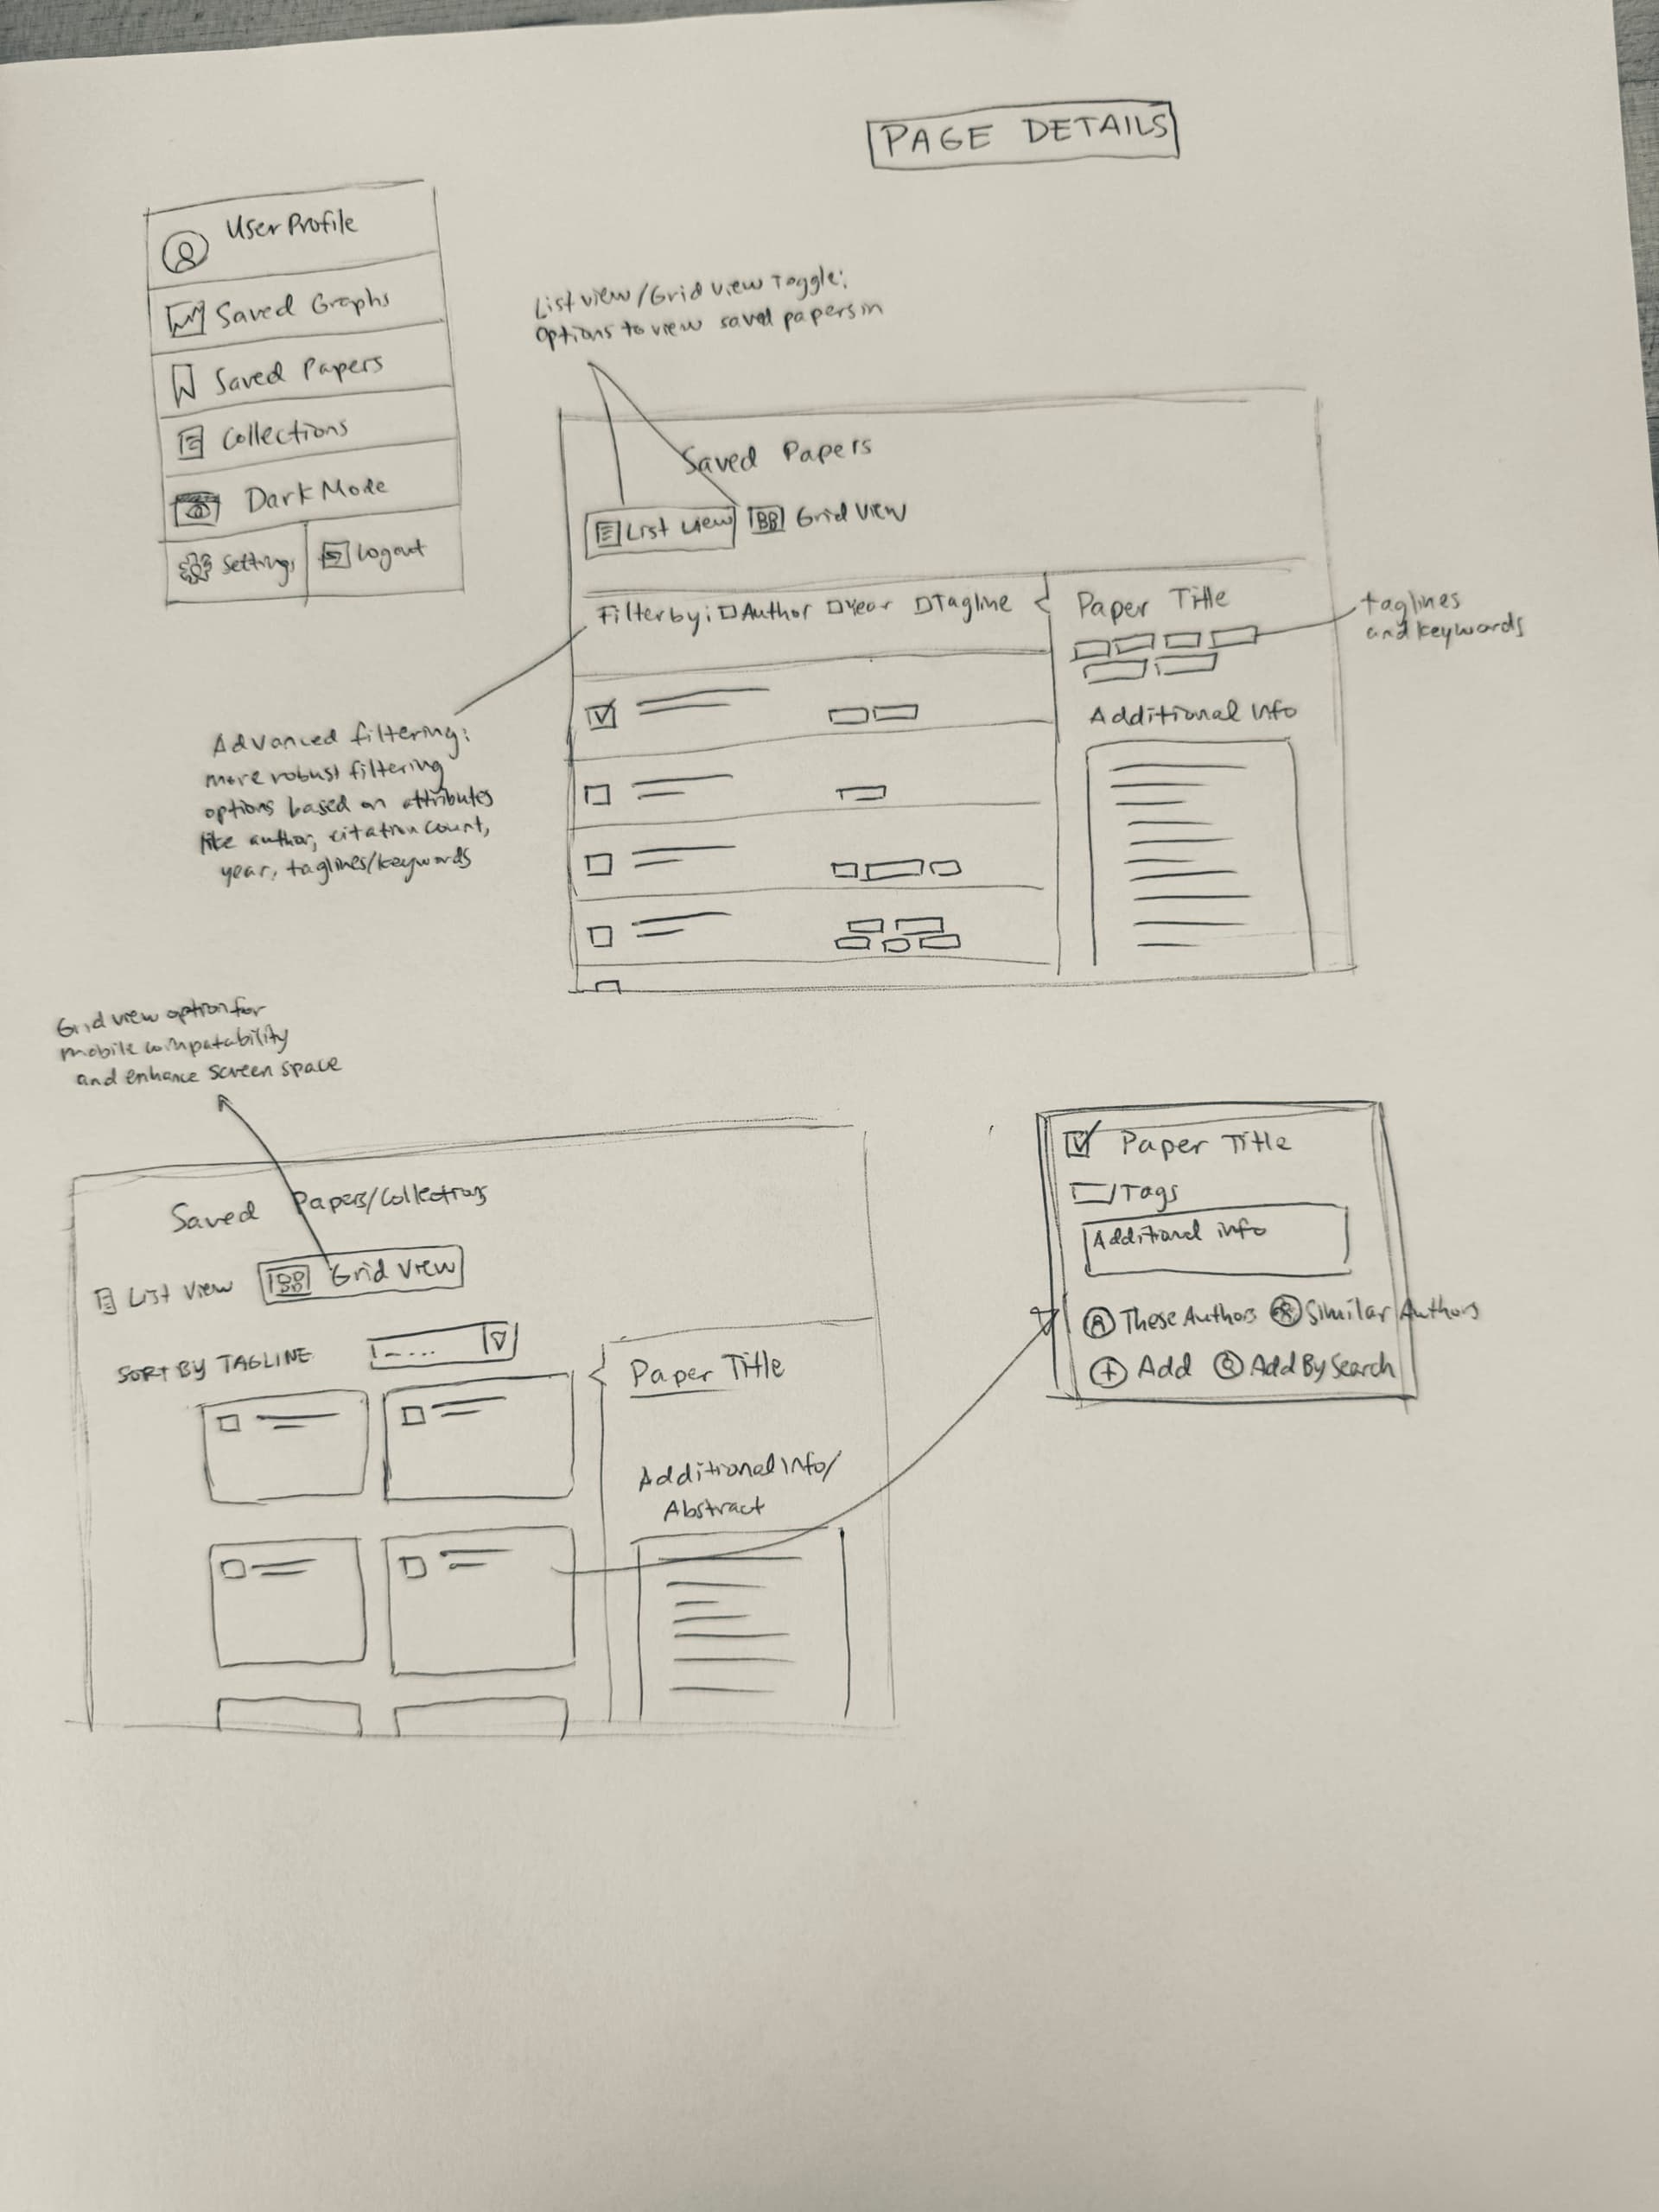 PAGE DETAILS
User Profile
Saved Graphs
Saved Papers
Collections
Dark Mode
Settings
Logout
List view/Grid view Toggle:
options to view saved papers in
Saved Papers
List view
Grid view
Filter by: Author Year Tagline
Paper Title
taglines
and keywords
Additional Info
Advanced filtering:
more robust filtering
options based on attributes
like author, citation count,
year, taglines/keywords
Grid view option for
mobile compatability
and enhance screen space
Saved Papers/Collections
List view
Grid view
SORT BY TAGLINE
Paper Title
Additional Info/
Abstract
Paper Title
Tags
Additional info
These Authors
Similar Authors
Add
Add By Search